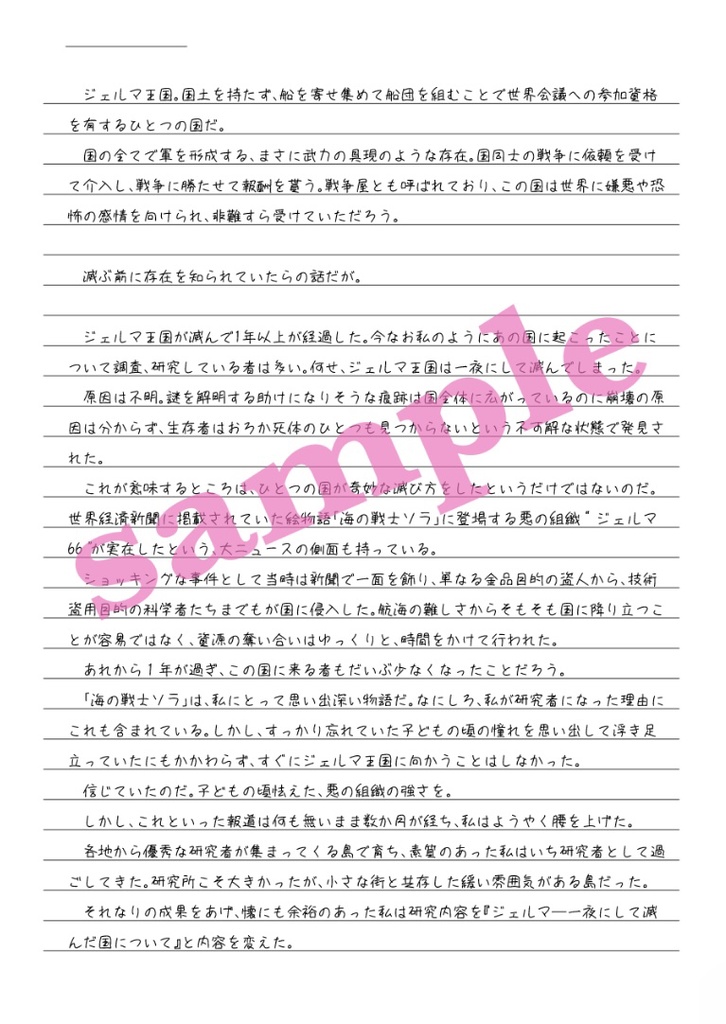 ジェルマ王国。国土を持たず、船を寄せ集めて船団を組むことで世界会議への参加資格
を有するひとつの国だ。
国の全てで軍を形成する、まさに武力の具現のような存在。国同士の戦争に依頼を受け
て介入し、戦争に勝たせて報酬を貰う。戦争屋とも呼ばれており、この国は世界に嫌悪や恐
怖の感情を向けられ、非難すら受けていただろう。
滅ぶ前に存在を知られていたらの話だが。
ジェルマ王国が滅んで1年以上が経過した。今なお私のようにあの国に起こったことに
ついて調査、研究している者は多い。何せ、ジェルマ王国は一夜にして滅んでしまった。
原因は不明。謎を解明する助けになりそうな痕跡は国全体に広がっているのに崩壊の原
因は分からず、生存者はおろか死体のひとつも見つからないという不可解な状態で発見さ
れた。
これが意味するところは、ひとつの国が奇妙な滅び方をしたというだけではないのだ。
世界経済新聞に掲載されていた絵物語「海の戦士ソラ」に登場する悪の組織“ジェルマ
66”が実在したという、大ニュースの側面も持っている。
ショッキングな事件として当時は新聞で一面を飾り、単なる金品目的の盗人から、技術
盗用目的の科学者たちまでもが国に侵入した。航海の難しさからそもそも国に降り立つこ
とが容易ではなく、資源の奪い合いはゆっくりと、時間をかけて行われた。
あれから1年が過ぎ、この国に来る者もだいぶ少なくなったことだろう。
「海の戦士ソラ」は、私にとって思い出深い物語だ。なにしろ、私が研究者になった理由に
これも含まれている。しかし、すっかり忘れていた子どもの頃の憧れを思い出して浮き足
立っていたにもかかわらず、すぐにジェルマ王国に向かうことはしなかった。
信じていたのだ。子どもの頃怯えた、悪の組織の強さを。
しかし、これといった報道は何も無いまま数か月が経ち、私はようやく腰を上げた。
各地から優秀な研究者が集まってくる島で育ち、素質のあった私はいち研究者として過
ごしてきた。研究所こそ大きかったが、小さな街と共存した緩い雰囲気がある島だった。
それなりの成果をあげ、懐にも余裕のあった私は研究内容を『ジェルマ――一夜にして滅
んだ国について』と内容を変えた。
sample